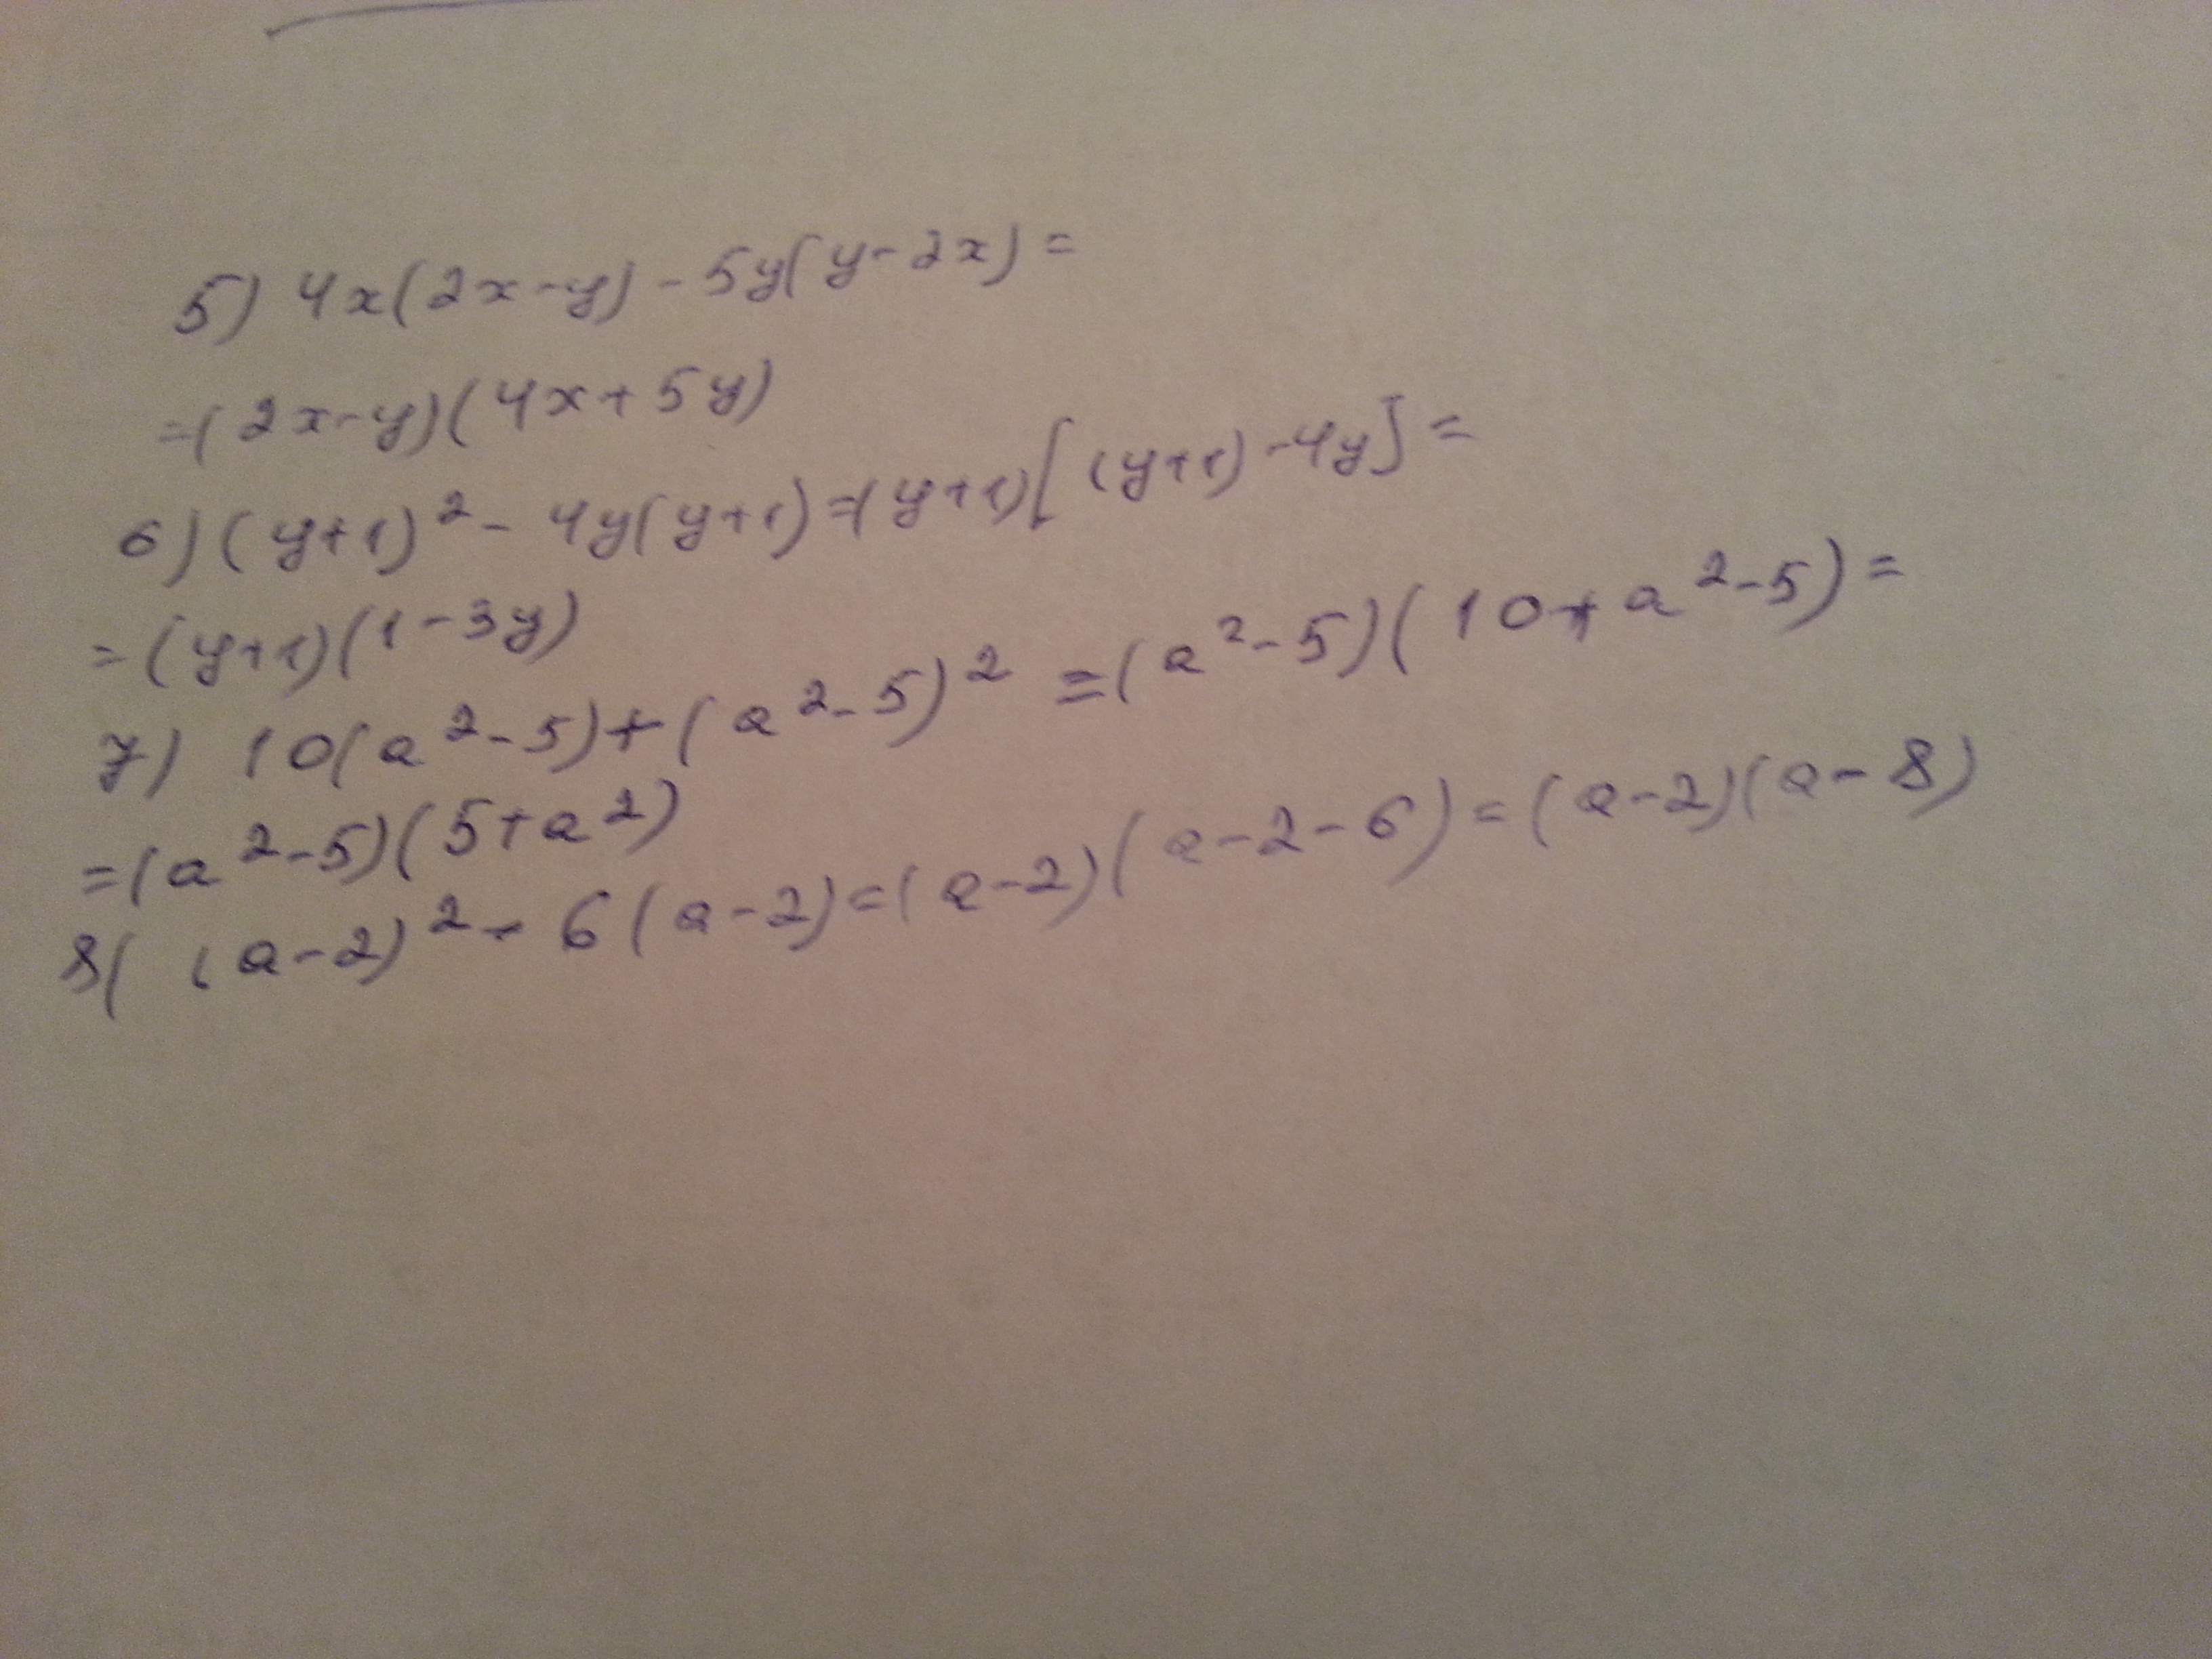 5) 4x(2x-y) - 5y(y-2x) =
=(2x-y)(4x+5y)
6) (y+1)² - 4y(y+1) =(y+1)[(y+1)-4y] =
= (y+1)(1-3y)
7) 10(a²-5)+(a²-5)² =(a²-5)(10+a²-5) =
=(a²-5)(5+a²)
8( (a-2)² - 6(a-2)=(a-2)(a-2-6)=(a-2)(a-8)